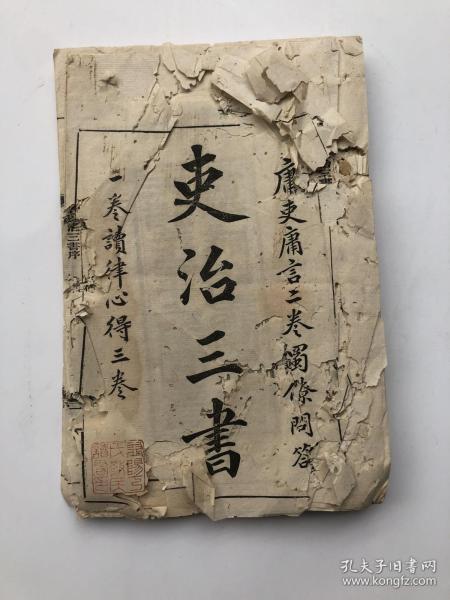 庸吏庸言二卷蜀僚問答
吏治三書
一卷讀律心得三卷
孔夫子旧书网
www.kongfz.com